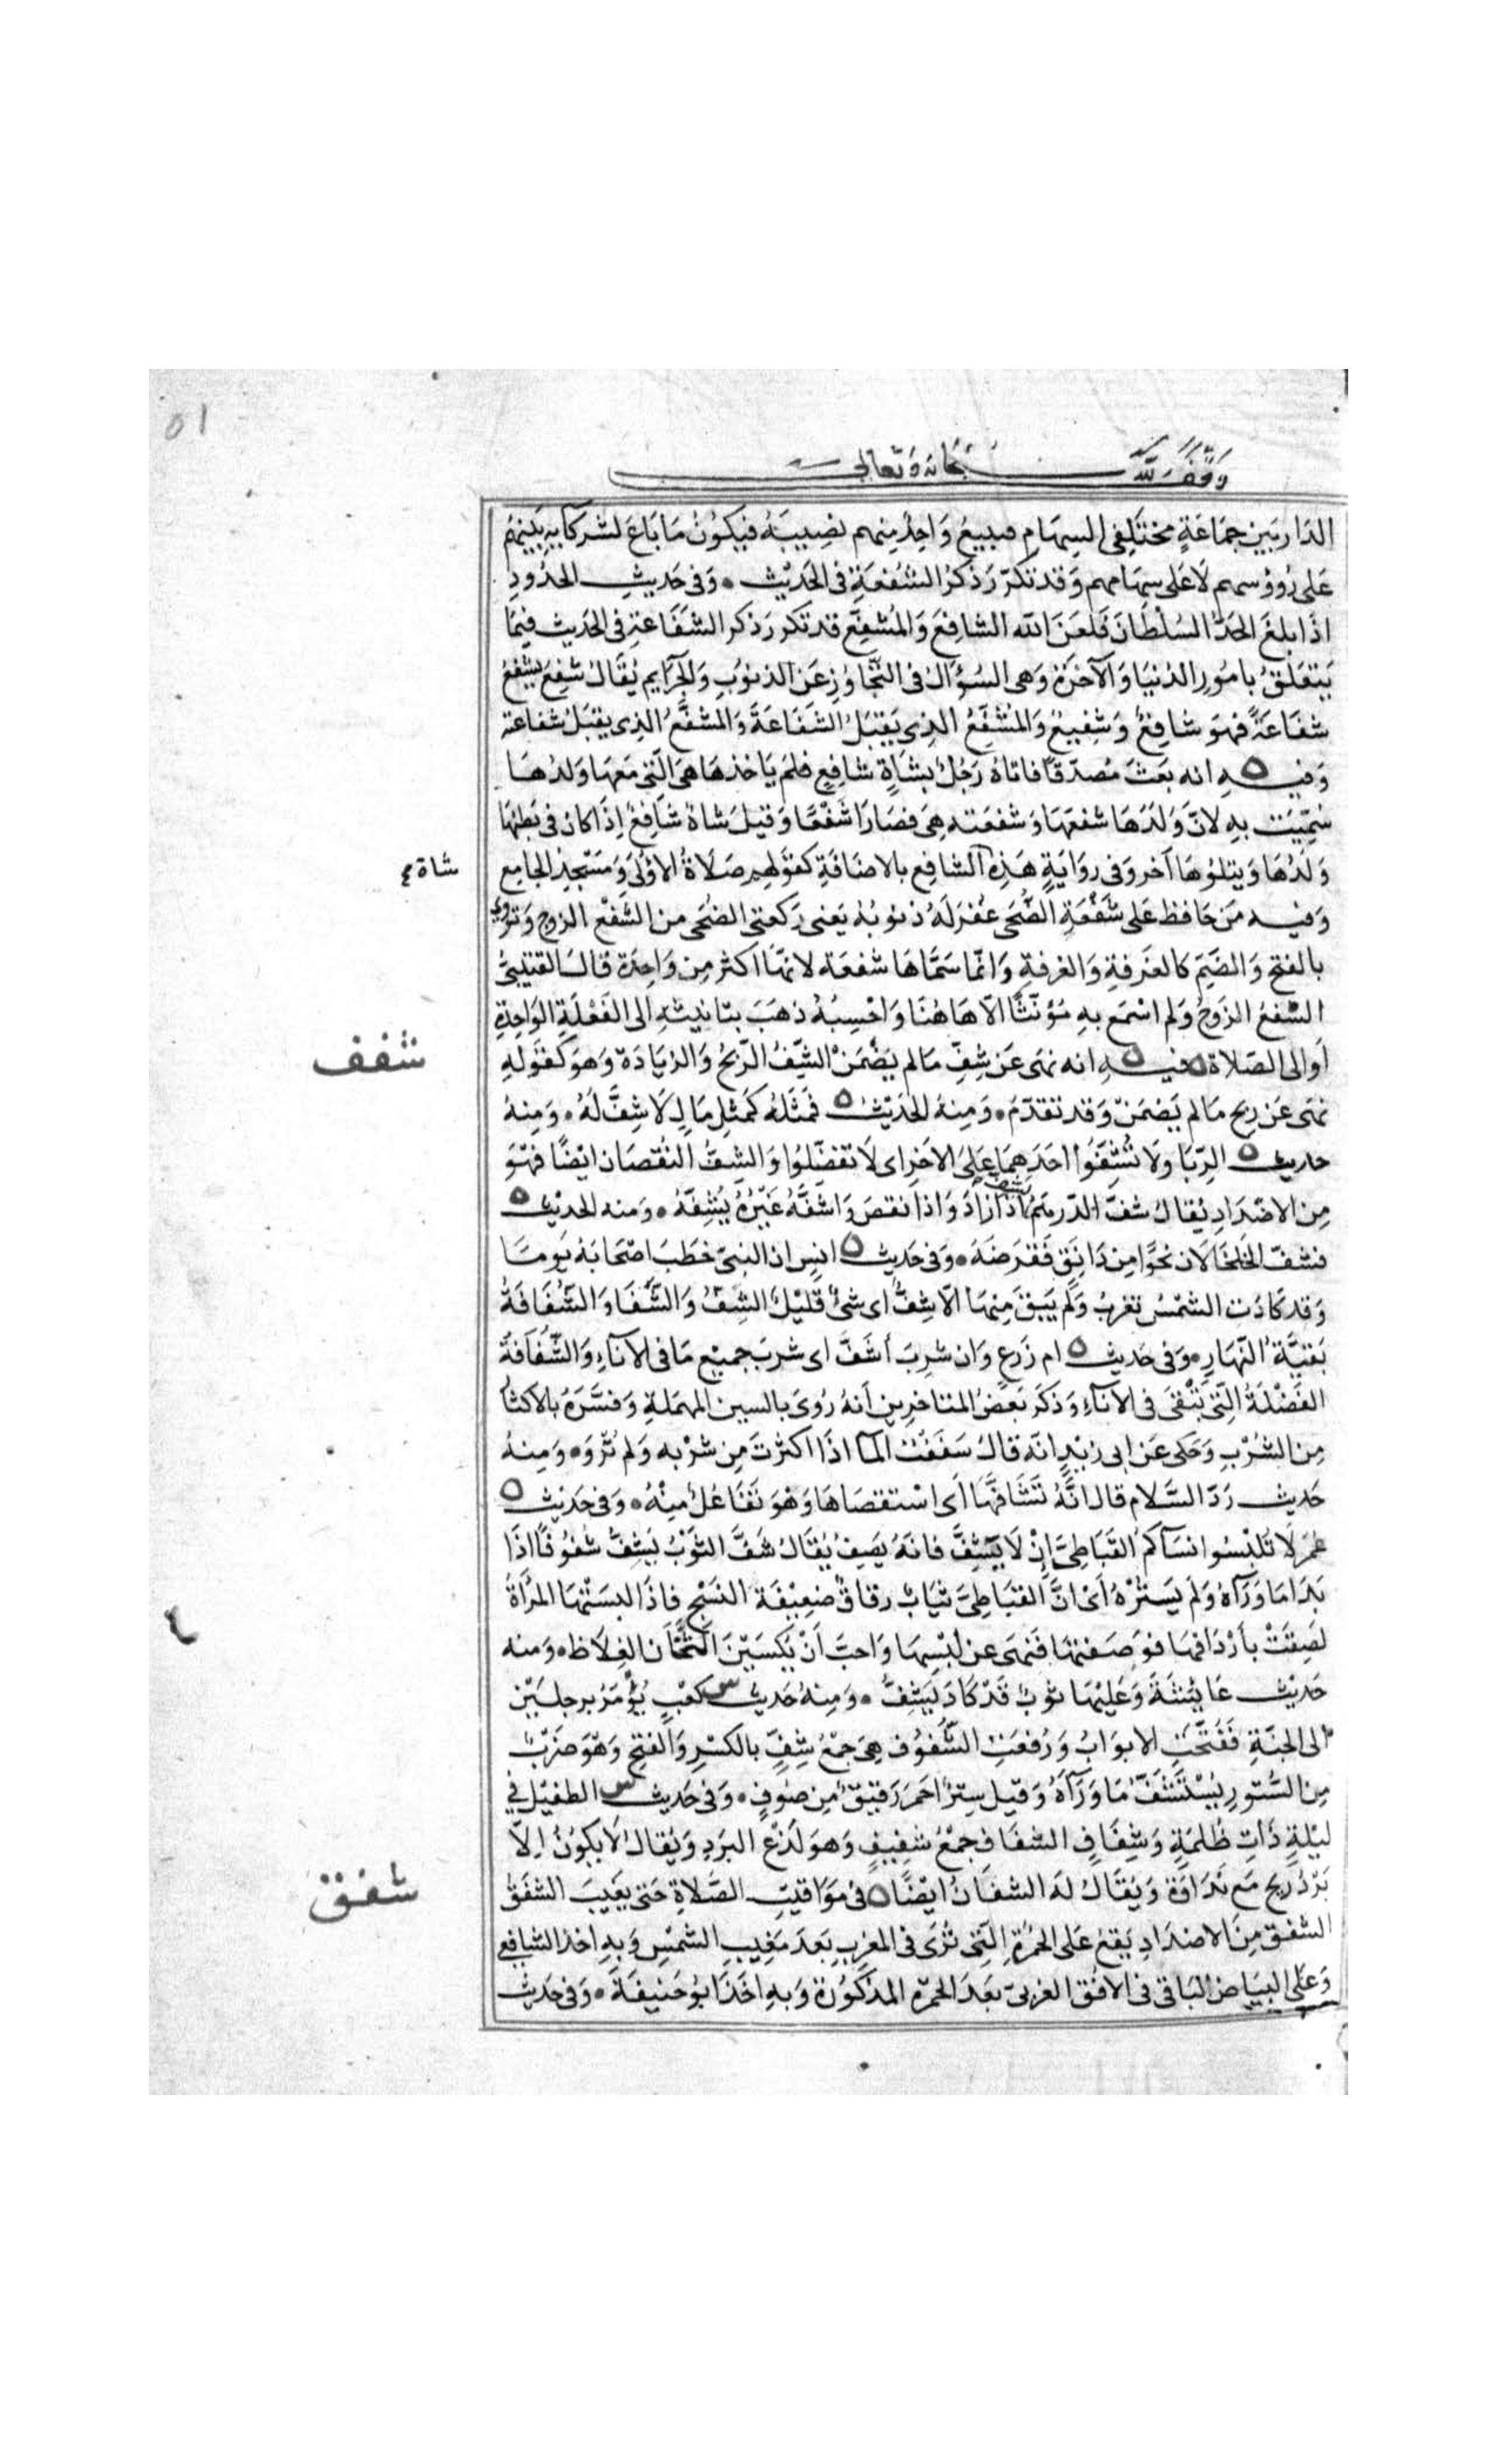 ٥١
وقف لله سبحانه وتعالى
الدَار بَين جمَاعَةٍ مختَلِفى السِهَامِ فيبيعُ وَاحِدٌ مِنهم نصِيبَهُ فيَكوُنُ مَا بَاعَ لشركَايهِ بَينهُم
عَلى رُووُسهم لَا عَلى سِهَامهم وَقد تكرّرَ ذكرُ الشُفعَةِ فى الحَدِيْث • وَفى حَدِيثِ الحدُودِ
اذَا بلغَ الحَدُّ السُلْطَانَ فَلعَنَ الله الشافِعَ وَالمُشفِّع قد تكرر ذكر الشَفَاعة فى الحَديث فيمَا
يَتعَلقُ بامُورِ الدُنيَا وَالآخرَة وَهى السُؤَالُ فى التّجَاوُزِ عَن الذنوُبِ وَالجرَايم يُقَالُ شفِعَ يشفعُ
شفَاعَةً فهوَ شافِعٌ وَشفِيعٌ وَالمُشَفِّعُ الذِى يَقبَلُ الشَفَاعَةَ وَالمشفَّعُ الذِى يقبَلُ شفاعته
وَفيـــهِ انه بعَثَ مُصدّقًا فاتاهُ رَجُلٌ بشَاةٍ شافِعٍ فلمَ يَاخذهَا هىَ الّتى مَعَهَا وَلدُهَا
سُمِّيَت بهِ لانّ وَلدَهَا شفعَهَا وَشفعَته هِىَ فصَارَا شَفْعًا وَقيلَ شاة شافِعٌ اِذَا كان فى بَطنِهَا
وَلدُهَا وَيتلوُهَا آخر وَفى روَايَةٍ هَذِه الشافِع بالاضَافَةِ كقَولهِم صَلَاةُ الاوُلىَ وَمَسْجدِ الجامِع
شاة
وَفيــه مَن حَافظ عَلى شفْعَةِ الضُّحَى غفرَ لَهُ ذنوبُهُ يَعنى رَكعتى الضُحَى من الشَفْع الزوج وَتروى
بالفتح وَالضَمّ كالغَرفةِ وَالغرفةِ وَانّمَا سَمَّاهَا شفعَة لانهّا اكثر مِن وَاحِدَة قالَ القتيبىُّ
الشفعُ الزَوجُ وَلم اسْمَع بهِ مُؤنّثًا الّا هَاهُنَا وَاحْسِبُهُ ذهَبَ بتانيثهِ الى الفَعْلَةِ الوَاحِدةِ
اَو الى الصَلاة فيـــهِ انه نهَى عَن شِفّ مَا لم يضْمَنْ الشِّفُّ الرّبحُ وَالزيَادَة وَهوَ كقَولهِ
شفف
نهَى عَن ربح مَا لم يَضمَنْ وَقد تقدّمَ • وَمِنهُ الحَدِيْثُ فمَثَلهُ كمَثلِ مَالٍ لَا شِفَّ لَهُ • وَمِنهُ
حديث الرّبَا وَلَا تُشِفُّوا احَدَهِمَا عَلىَ الاخَرِ اى لَا تفضّلُوا وَالشِفُّ النُقصَان ايْضًا فهْوَ
مِن الاضْدَادِ يُقالُ شفّ الدّرهَمُ يشف اذَا زادَ وَاذا نقصَ وَاشفَّهُ غَيْرُهُ يُشِفّهُ • وَمنه الحديث
فشفّ الخلخَالَان نحْوًا مِن دَانِق فَقرَضَهُ • وَفى حَديث انسٍ ان النبىّ خطَبَ اصْحَابَهُ يَومًا
وَقد كادَت الشمْسُ تغربُ وَلم يَبقَ مِنهَا الّا شِفٌّ اى شئ قَليْلٌ الشِفُّ وَالشَّفَا وَالشُّفَافَةُ
بَقيَّةُ النّهَارِ • وَفى حَديث ام زَرعٍ وَان شربَ اشَفَّ اى شربَ جميْعَ مَا فى الانآءِ وَالشُّفَافةُ
الفَضْلَةُ الّتِى تَبْقىَ فى الانآءِ وَذكَر بَعضُ المتَاخرِين اَنهُ رُوِىَ بالسين المهمَلةِ وَفسَّرَهُ بالاكثَارِ
مِن الشُرْبِ وَحَكى عَن ابى زيْدٍ انّه قالَ سَفَفْتُ المآ اذَا اكثرتَ مِن شرْبهِ وَلم تُرْوَ • وَمِنهُ
حَديث رَدّ السَّلَام قال انَّهُ تَشَافَّهَا اَى اسْتقصَاهَا وَهوَ تفَاعُل مِنْهُ • وَفى حَديْث
عُمَرَ لَا تلبْسُوا نسَآكم القَبَاطِىَّ اِنْ لَا يَشِفَّ فانّهُ يَصِفُ يُقَالُ شَفَّ الثوْبُ يَشِفّ شفُوفًا اذَا
بَدَا مَا وَرَآهُ وَلم يَستُرْهُ اَى انَّ القبَاطِىَّ ثيَابٌ رقاقٌ ضعِيْفَة النَسْجِ فاذَا لبسَتْهَا المرْأةُ
لصَقَتْ بأرْدَافهَا فوَصَفتهَا فَنهَى عن لبْسِهَا وَاحبَّ اَنْ يُكسَيْنَ الثّخَانَ الغِلَاظَ • وَمنه
حَديْث عَايْشَةَ وَعَليْهَا ثوبٌ قَدْ كادَ يَشِفُّ • وَمِنهُ حَديث كعْبٍ يُؤمَرُ برجلَيْنِ
الى الجنّةِ فَفُتّحَتِ الابوَابُ وَرُفعَتِ الشُّفوُف هِىَ جَمْعُ شِفٍّ بالكسْرِ وَالفتح وَهوَ ضرْبٌ
مِن السُّتورِ يُسْتَشفُّ مَا وَرَآهُ وَقيْل سِترٌ احمَر رَقيقٌ مِن صُوفٍ • وَفى حَديث الطفيْل فى
ليْلةٍ ذَاتِ ظلمَةٍ وَشِفَافٍ الشفَاف جمْعُ شفِيفٍ وَهوَ لَذْعُ البرْدِ وَيُقالُ لَا يكوُنُ اِلّا
بَرْدُ ريحٍ مَع نَدَاوَة وَيُقَالُ لهَ الشفَانُ ايْضًا فى مَوَاقيتِ الصَّلَاةِ حَتى يَغيبَ الشفَقُ
شفق
الشفق مِنَ الاضدَادِ يَقعُ عَلى الحُمْرَةِ الَّتى تُرَى فى المغربِ بَعدَ مَغِيبِ الشمْسِ وَبهِ اخذ الشافِعى
وَعَلى البيَاض البَاقى فى الافُق الغربىّ بعَدَ الحمْرة المذكوُرة وَبهِ اخَذَ ابوُ حَنيفَة • وَفى حَديث